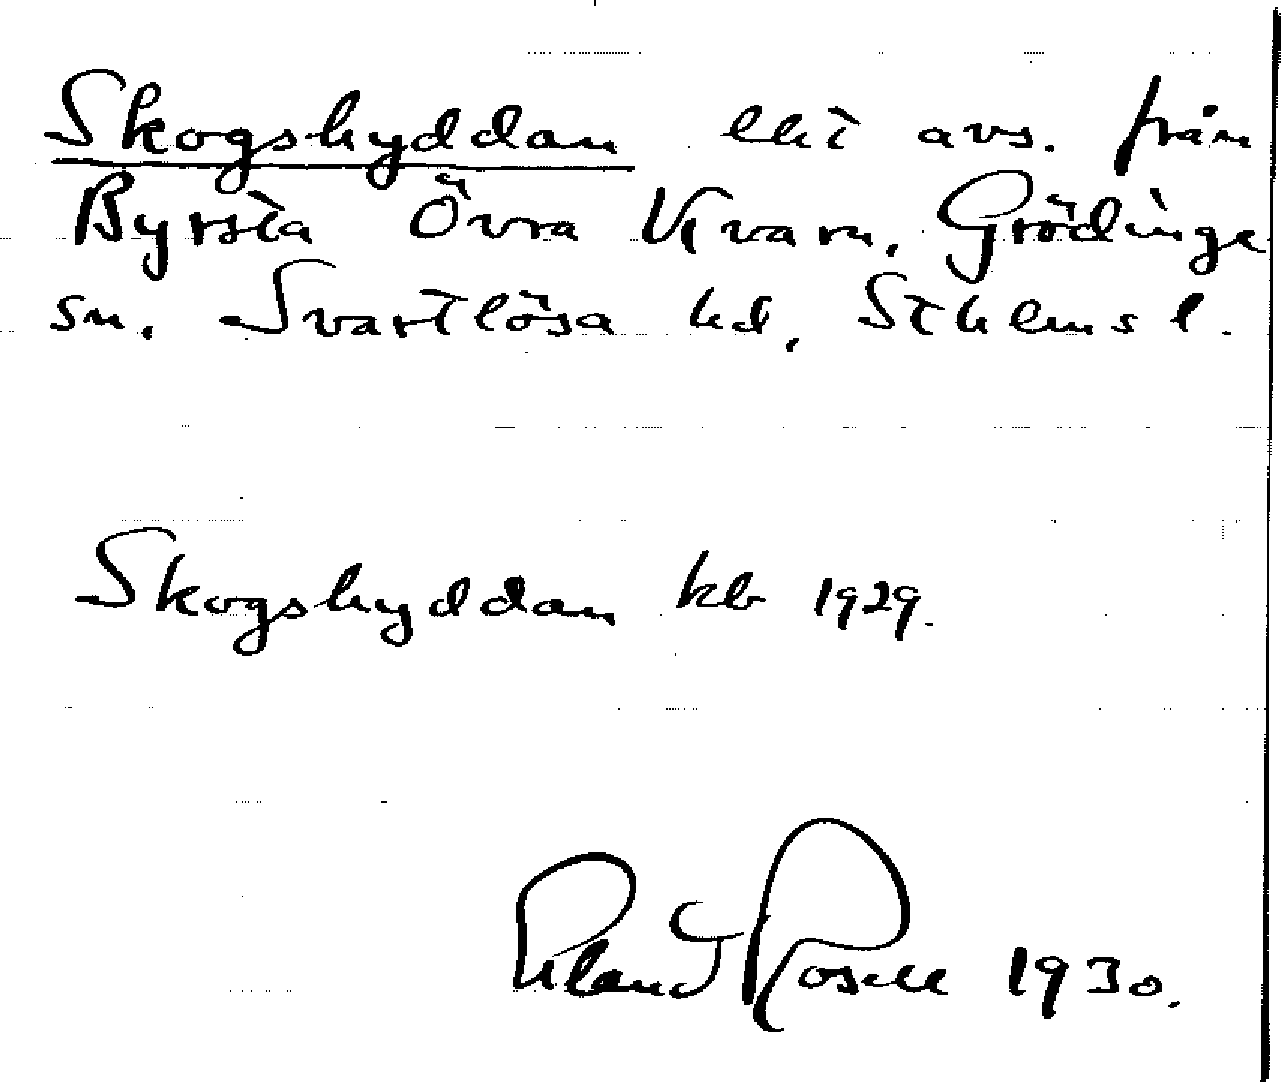 Skogshyddan lht avs. från
Byrsta Övra Kvarn, Grödinge
sn, Svartlösa hd, Sthlms l.
Skogshyddan kb 1929.
Erland Rosell 1930.